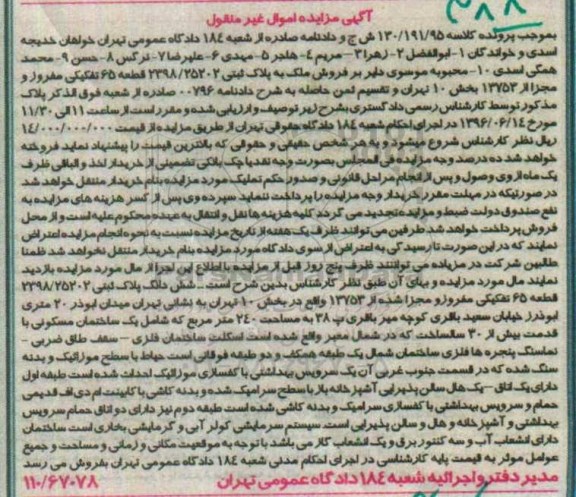 ۳۸۸
آگهی مزایده اموال غیر منقول
بموجب پرونده کلاسه ۱۳۰/۱۹۱/۹۵ ش ج و دادنامه صادره از شعبه ۱۸٤ دادگاه عمومی تهران خواهان خدیجه
اسدی و خواندگان ۱-ابوالفضل ۲- زهرا ۳- مریم ٤- هاجر ۵- مهدی ۶- علیرضا ۷- نرگس ۸- حسن ۹- محمد
همگی اسدی ۱۰- محبوبه موسوی دایر بر فروش ملک به پلاک ثبتی ۲۳۹۸/۲۵۲۰۲ قطعه ۶۵ تفکیکی مفروز و
مجزا از ۱۳۷۵۳ بخش ۱۰ تهران و تقسیم ثمن حاصله به شرح دادنامه ۰۰۷۹۶ صادره از شعبه فوق الذکر پلاک
مذکور توسط کارشناس رسمی دادگستری بشرح زیر توصیف و ارزیابی شده و مقرر است از ساعت ۱۱ الی ۱۱/۳۰
مورخ ۱۳۹۶/۰۶/۱٤ در اجرای احکام شعبه ۱۸٤ دادگاه حقوقی تهران از طریق مزایده از قیمت ۱٤/۰۰۰/۰۰۰/۰۰۰
ریال نظر کارشناس شروع میشود و به هر شخص حقیقی و حقوقی که بالاترین قیمت را پیشنهاد نماید فروخته
خواهد شد ده درصد وجه مزایده فی المجلس بصورت وجه نقد یا چک بانکی تضمینی از خریدار اخذ و الباقی ظرف
یک ماه از وی وصول و پس از انجام مراحل قانونی و صدور حکم تملیک مورد مزایده بنام خریدار منتقل خواهد شد
در صورتیکه در مهلت مقرر خریدار وجه مزایده را پرداخت ننماید سپرده وی پس از کسر هزینه های مزایده به
نفع صندوق دولت ضبط و مزایده تجدید می گردد کلیه هزینه ها نقل و انتقال به عهده محکوم علیه است و از محل
فروش پرداخت خواهد شد طرفین می توانند ظرف یک هفته از تاریخ مزایده نسبت به نحوه انجام مزایده اعتراض
نمایند که در این صورت تا رسیدگی به اعتراض از سوی دادگاه مورد مزایده بنام خریدار منتقل نخواهد شد ظمنا
طالبین شرکت در مزیاده می توانند ظرف پنج روز قبل از مزایده با اطلاع این اجرا از مال مورد مزایده بازدید
نمایند مال مورد مزایده و بهای آن طبق نظر کارشناس بدین شرح است – شش دانگ پلاک ثبتی ۲۳۹۸/۲۵۲۰۲
قطعه ۶۵ تفکیکی مفروز و مجزا شده از ۱۳۷۵۳ واقع در بخش ۱۰ تهران به نشانی تهران میدان ابوذر ۲۰ متری
ابوذر خیابان سعید باقری کوچه میر باقری پ ۳۸ به مساحت ۲٤۰ متر مربع که شامل یک ساختمان مسکونی با
قدمت بیش از ۳۰ سالساخت که در شمال معبر واقع شده است اسکلت ساختمان فلزی – سقف طاق ضربی –
نماسنگ پنجره ها فلزی ساختمان شمال یک طبقه همکف و دو طبقه فوقانی است حیاط با سطح موزائیک و بدنه
سنگ شده که در قسمت جنوب غربی آن یک سرویس بهداشتی با کفسازی موزائیک احداث شده است طبقه اول
دارای یک اتاق – یک هال سالن پذیرایی آشپزخانه باز با سطح سرامیک شده و بدنه کاشی با کابینت ام دی اف قدیمی
حمام و سرویس بهداشتی با کفسازی سرامیک و بدنه کاشی شده است طبقه دوم نیز دارای دو اتاق حمام سرویس
بهداشتی و آشپزخانه و هال و سالن پذیرایی است. سیستم سرمایشی کولر آبی و گرمایشی بخاری است ساختمان
دارای انشعاب آب و سه کنتور برق و یک انشعاب گاز می باشد با توجه به موقعیت مکانی و زمانی و مساحت و جمیع
عوامل موثر به قیمت پایه کارشناسی در اجرای احکام مدنی شعبه ۱۸٤ دادگاه عمومی تهران بفروش می رسد
مدیر دفتر و اجرائیه شعبه ۱۸٤ دادگاه عمومی تهران
۱۱۰/۶۷۰۷۸